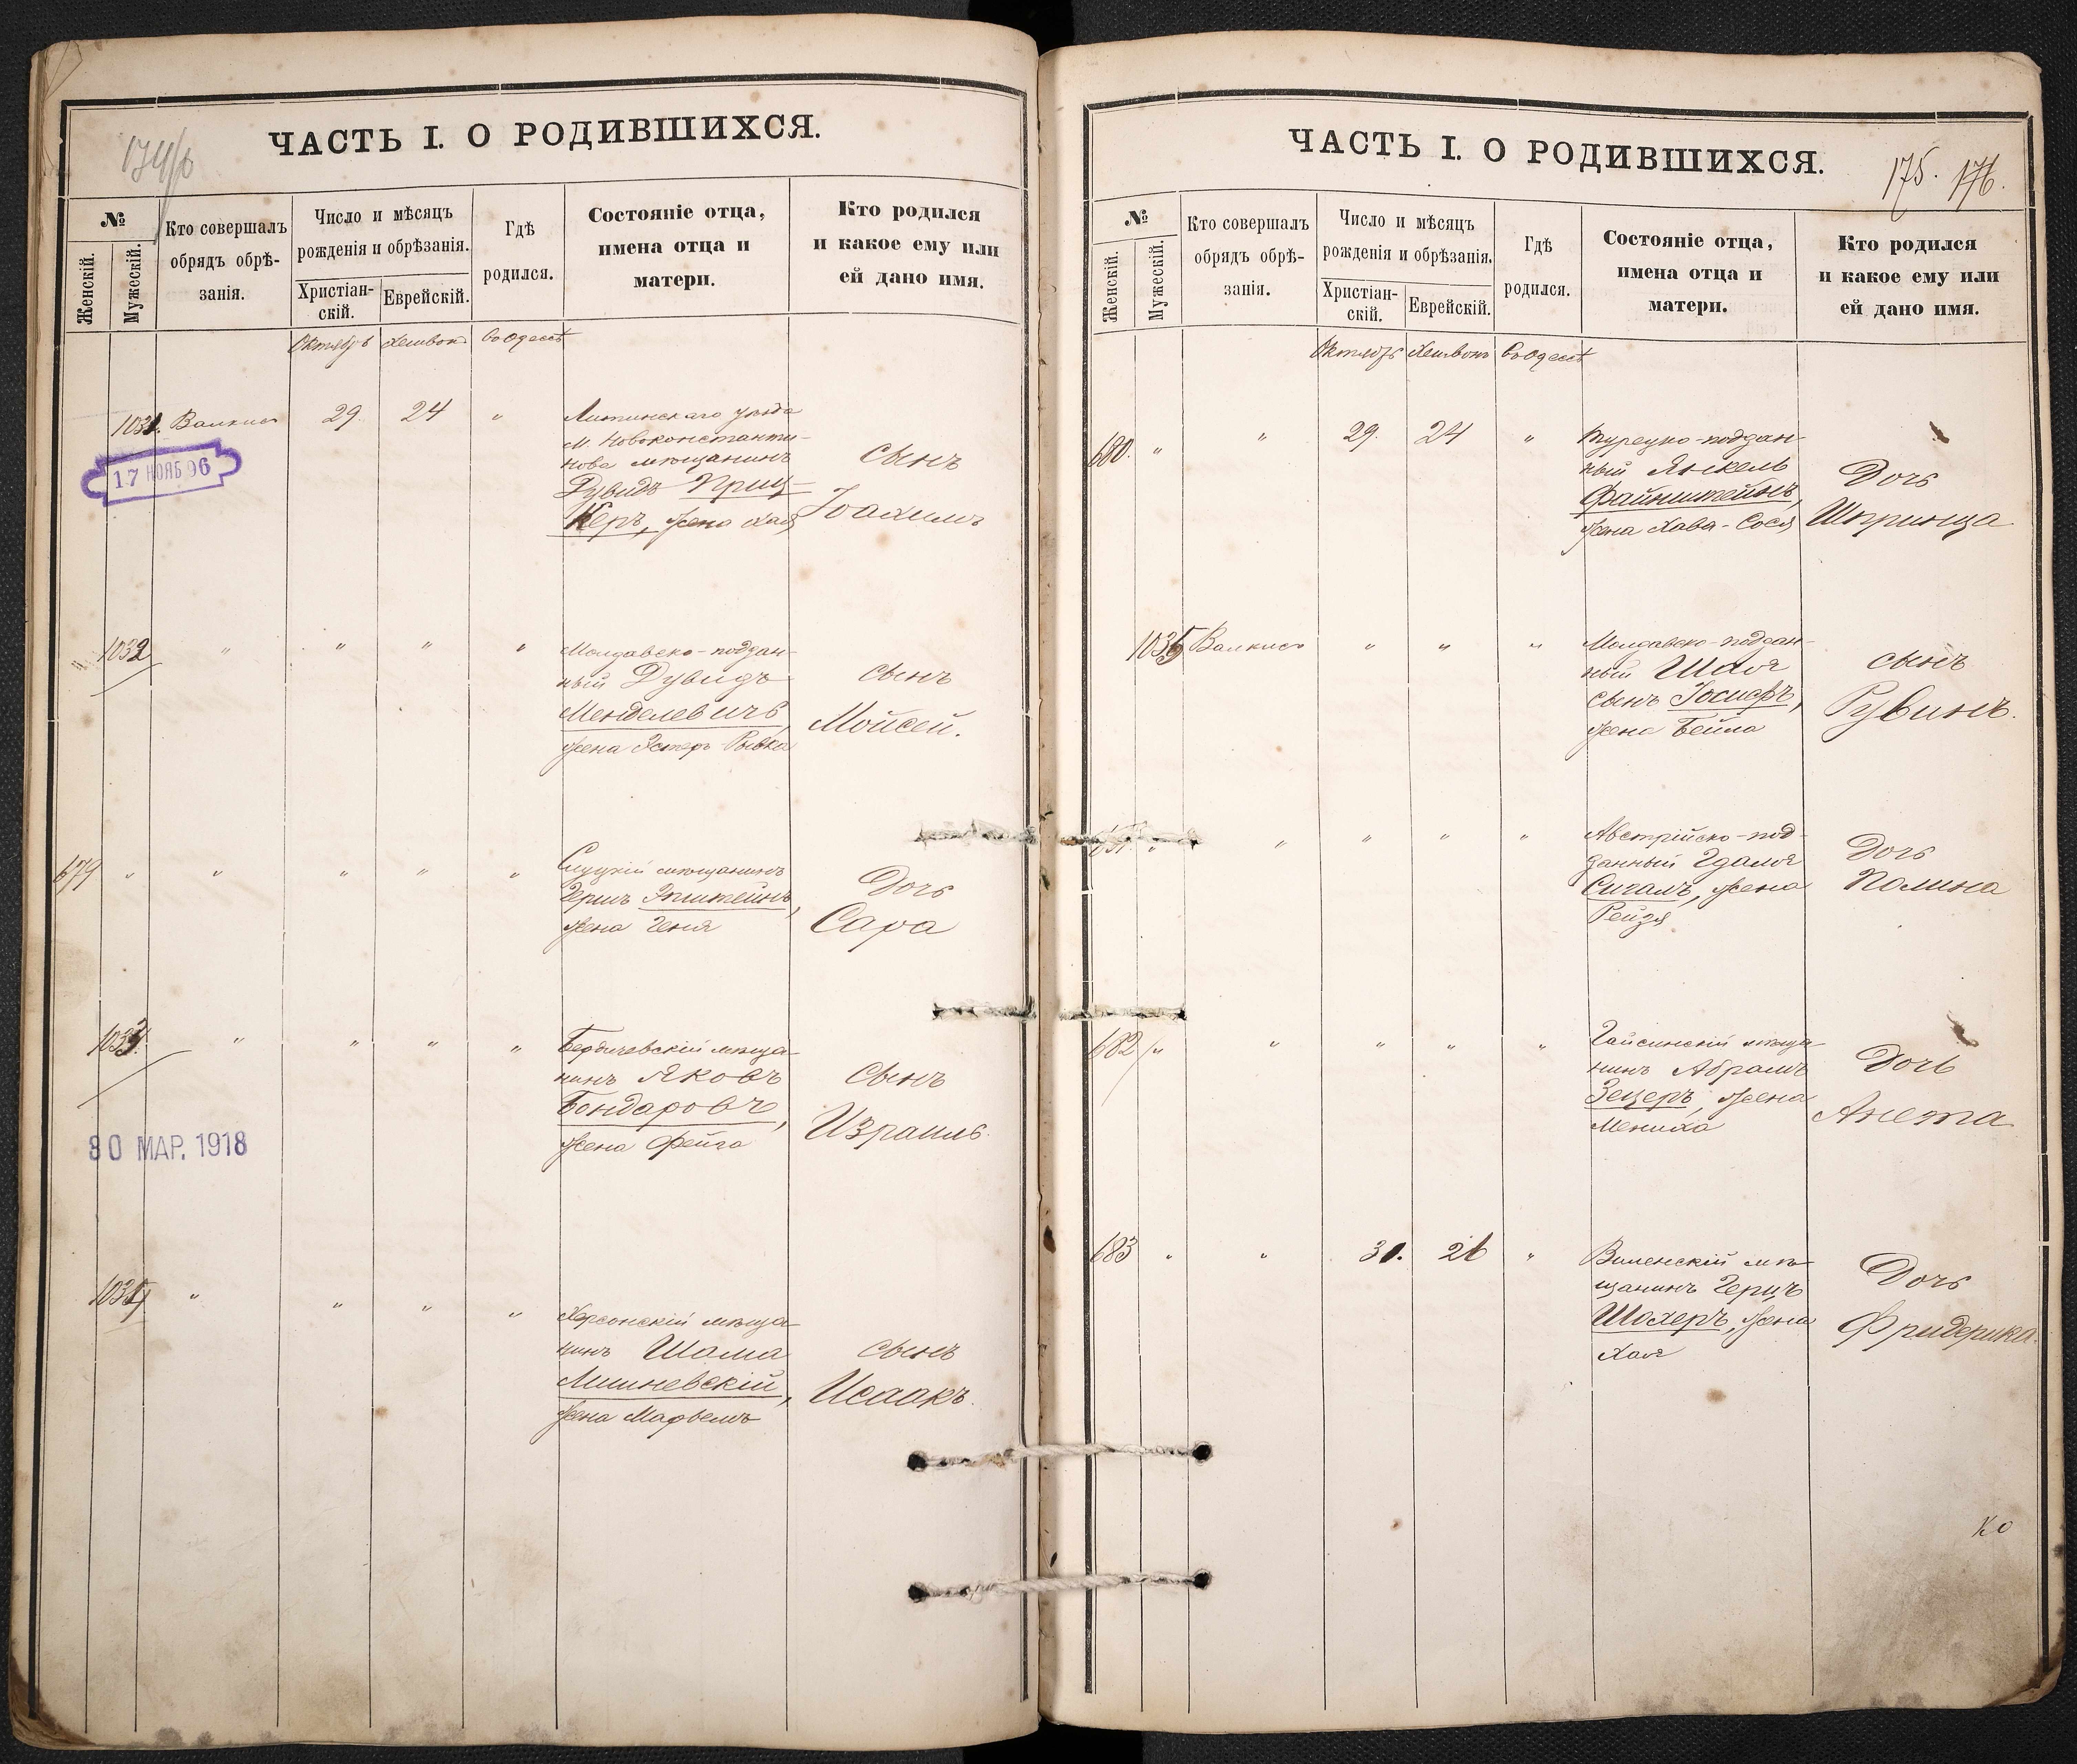 ЧАСТЬ I. О РОДИВШИХСЯ.
№
Женскій.
Мужескій.
Кто совершалъ
обрядъ обрѣ-
занія.
Число и мѣсяцъ
рожденія и обрѣзанія.
Христіан-
скій.
Еврейскій.
Гдѣ
родился.
Состояніе отца,
имена отца и
матери.
Кто родился
и какое ему или
ей дано имя.
Октябрь Хешвон Въ Одессѣ
1031. 29. 24 "
17 НОЯБ 96
Литинскаго уѣзда
м. Новоконстанти-
нова мѣщанинъ
Дувидъ Приц-
керъ, жена Хая
сынъ
Іоахимъ
1032 " " " "
Молдавско-поддан-
ный Дувидъ
Менделевичъ,
жена Эстеръ Рывка
сынъ
Мойсей.
679 " " " " "
Слуцкій мѣщанинъ
Герш Эпштейнъ,
жена Геня
Дочь
Сара
1033 " " " "
Бердичевскій мѣща-
нинъ Яковъ
Бондаровъ,
жена Фейга
сынъ
Израиль.
30 МАР. 1918
1034 " " " "
Херсонскій мѣща-
нинъ Шама
жена
сынъ
Исаакъ.
ЧАСТЬ I. О РОДИВШИХСЯ.
175. 176.
№
Женскій.
Мужескій.
Кто совершалъ
обрядъ обрѣ-
занія.
Число и мѣсяцъ
рожденія и обрѣзанія.
Христіан-
скій.
Еврейскій.
Гдѣ
родился.
Состояніе отца,
имена отца и
матери.
Кто родился
и какое ему или
ей дано имя.
Октябрь Хешвонъ Въ Одессѣ
680. " " 29. 24 "
Турецко-поддан-
ный Янкель
Файнштейнъ,
жена Хава-Сося
Дочь
Шпринца
1035 " " "
Молдавско-поддан-
ный Шая
сынъ Іосифъ,
жена Бейла
сынъ
Рувинъ.
681. " " " " "
Австрійско-под-
данный Гдаля
Сигалъ, жена
Рейзя
Дочь
Полина
682 " " " " "
Гайсинскій мѣща-
нинъ Абрамъ
Зецеръ, жена
Мениха
Дочь
Анета
683 " " 31. 26 "
Виленскій мѣ-
щанинъ Герцъ
Шахеръ, жена
Хая
Дочь
Фридерика.